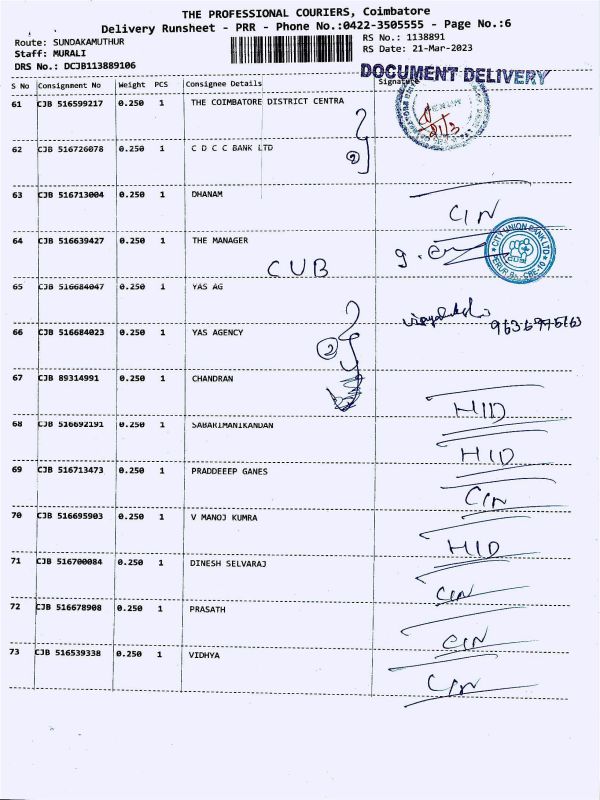 THE PROFESSIONAL COURIERS, Coimbatore
Delivery Runsheet - PRR - Phone No.:0422-3505555 - Page No.:6
Route: SUNDAKAMUTHUR
Staff: MURALI
DRS No.: DCJB113889106
RS No.: 1138891
RS Date: 21-Mar-2023
DOCUMENT DELIVERY
S No Consignment No Weight PCS Consignee Details Signature
61 CJB 516599217 0.250 1 THE COIMBATORE DISTRICT CENTRA
62 CJB 516726078 0.250 1 C D C C BANK LTD
2
63 CJB 516713004 0.250 1 DHANAM CIN
64 CJB 516639427 0.250 1 THE MANAGER
CUB
CITY UNION BANK LTD
CUB
CBE-10
65 CJB 516684047 0.250 1 YAS AG
66 CJB 516684023 0.250 1 YAS AGENCY
2
67 CJB 89314991 0.250 1 CHANDRAN HID
68 CJB 516692191 0.250 1 SABARIMANIKANDAN HID
69 CJB 516713473 0.250 1 PRADDEEEP GANES CIN
70 CJB 516695903 0.250 1 V MANOJ KUMRA HID
71 CJB 516700084 0.250 1 DINESH SELVARAJ CIN
72 CJB 516678908 0.250 1 PRASATH CIN
73 CJB 516539338 0.250 1 VIDHYA CIN